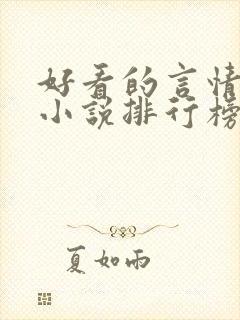 好看的言情
小说排行榜
夏如雨